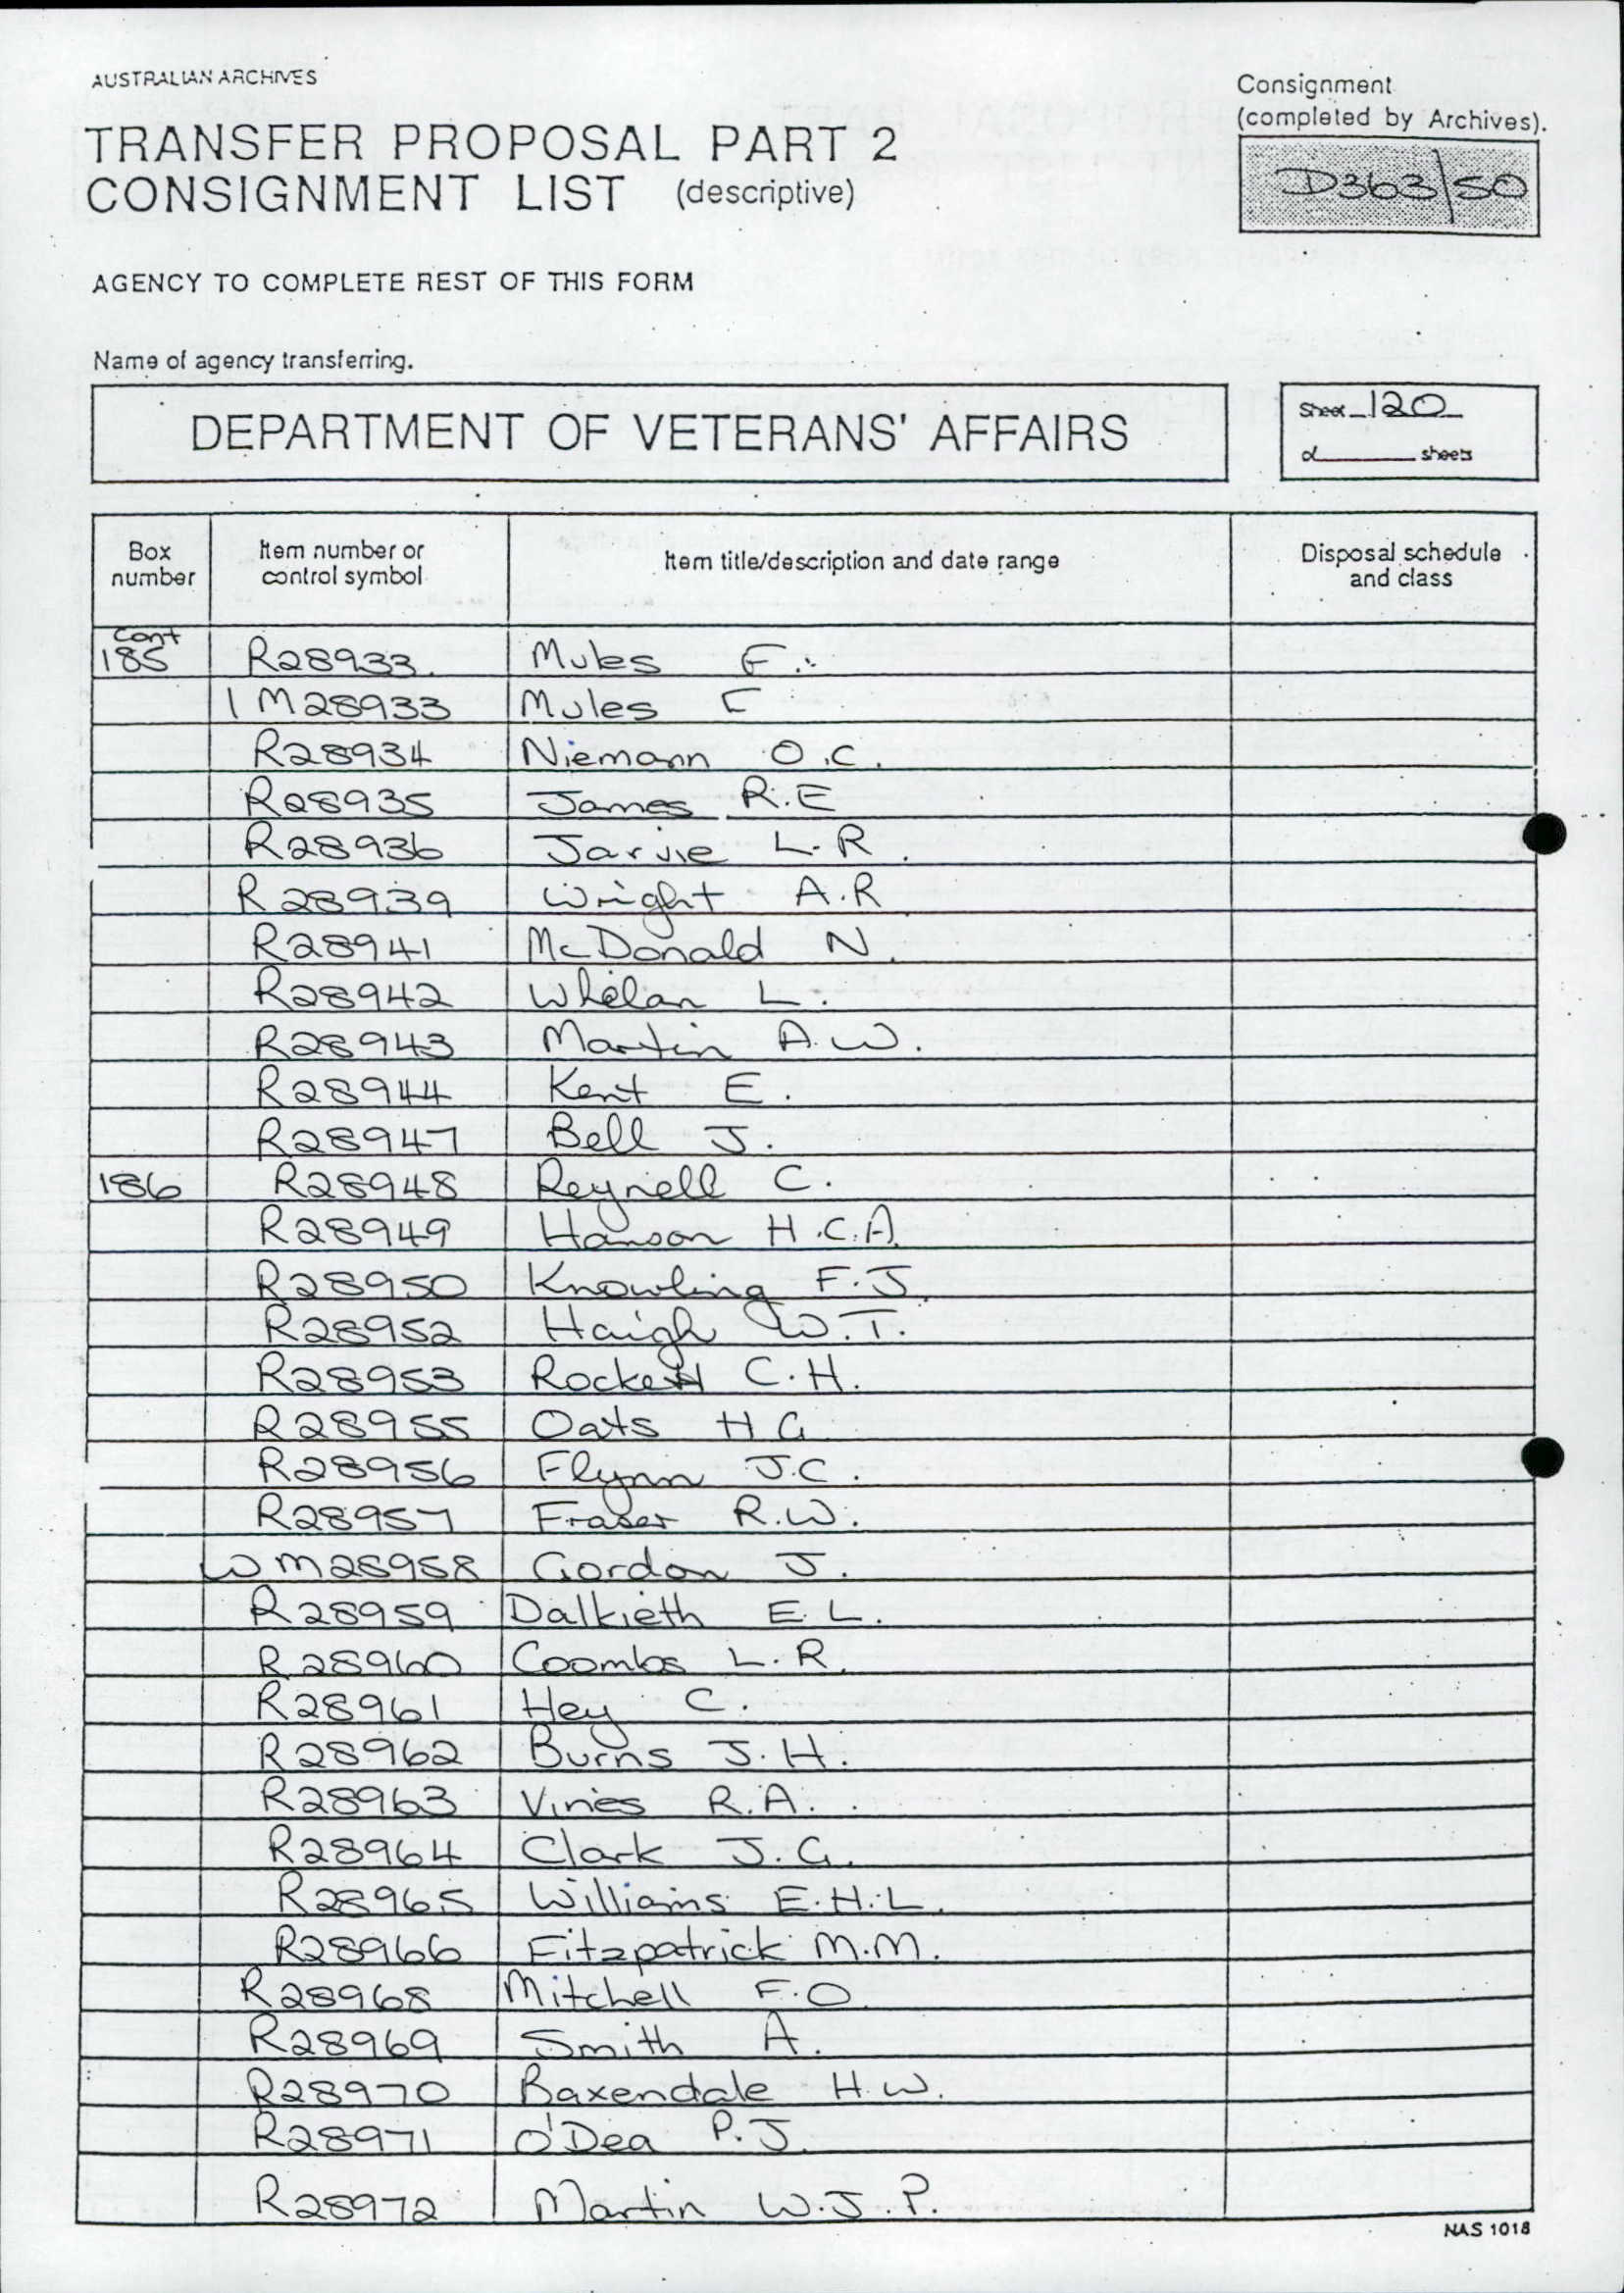 AUSTRALIAN ARCHIVES
Consignment
(completed by Archives).
TRANSFER PROPOSAL PART 2
CONSIGNMENT LIST (descriptive)
D363/50
AGENCY TO COMPLETE REST OF THIS FORM
Name of agency transferring.
DEPARTMENT OF VETERANS' AFFAIRS
Sheet 120
of ______ sheets
Box number
Item number or control symbol
Item title/description and date range
Disposal schedule and class
Cont
185 R28933 Mules F.
1 M28933 Mules F
R28934 Niemann O.C.
R28935 James R.E
R28936 Jarvie L.R.
R28939 Wright A.R
R28941 McDonald N.
R28942 Whelan L.
R28943 Martin A.W.
R28944 Kent E.
R28947 Bell J.
186 R28948 Reynell C.
R28949 Hanson H.C.A.
R28950 Knowling F.J.
R28952 Haigh W.T.
R28953 Rockett C.H.
R28955 Oats H G
R28956 Flynn J.C.
R28957 Fraser R.W.
WM28958 Gordon J.
R28959 Dalkieth E.L.
R28960 Coombs L.R.
R28961 Hey C.
R28962 Burns J.H.
R28963 Vines R.A.
R28964 Clark J.G.
R28965 Williams E.H.L.
R28966 Fitzpatrick M.M.
R28968 Mitchell F.O.
R28969 Smith A.
R28970 Baxendale H.W.
R28971 O'Dea P.J.
R28972 Martin W.J.P.
NAS 1018